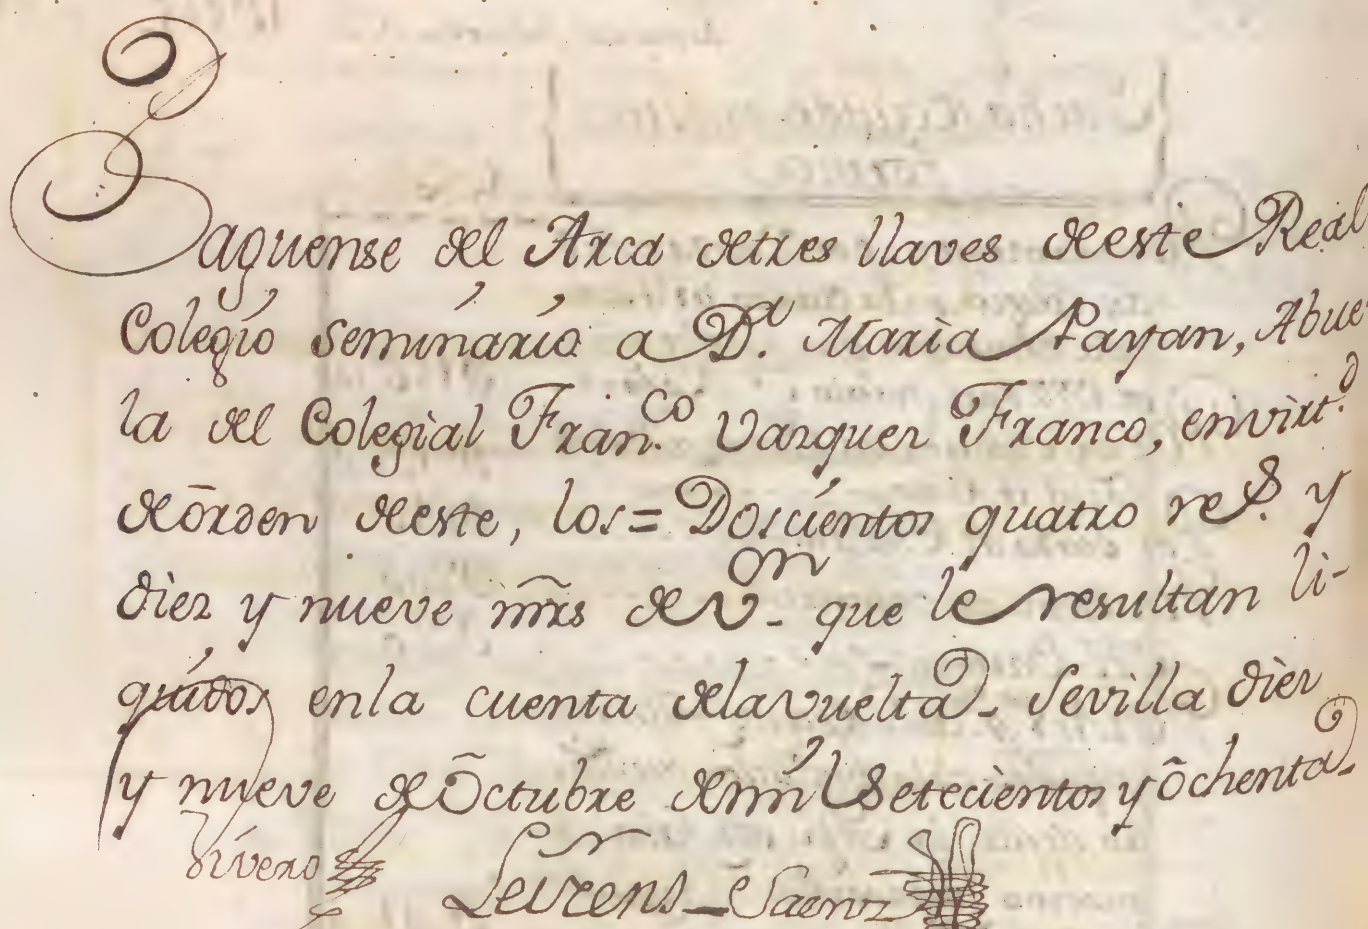 Paguense del Arca detres llaves deeste Real
Colegio seminario a D.ª Maria Payan, Abue-
la del Colegial Fran.co Vazquez Franco, envirt.d
deōrden deeste, los = Doscientos quatro res. y
diez y nueve mr̃s de Von. que le resultan li-
quidos enla cuenta delavuelta. Sevilla diez
y nueve de Octubre demil Setecientos y ochenta.
Rivero
Saenz